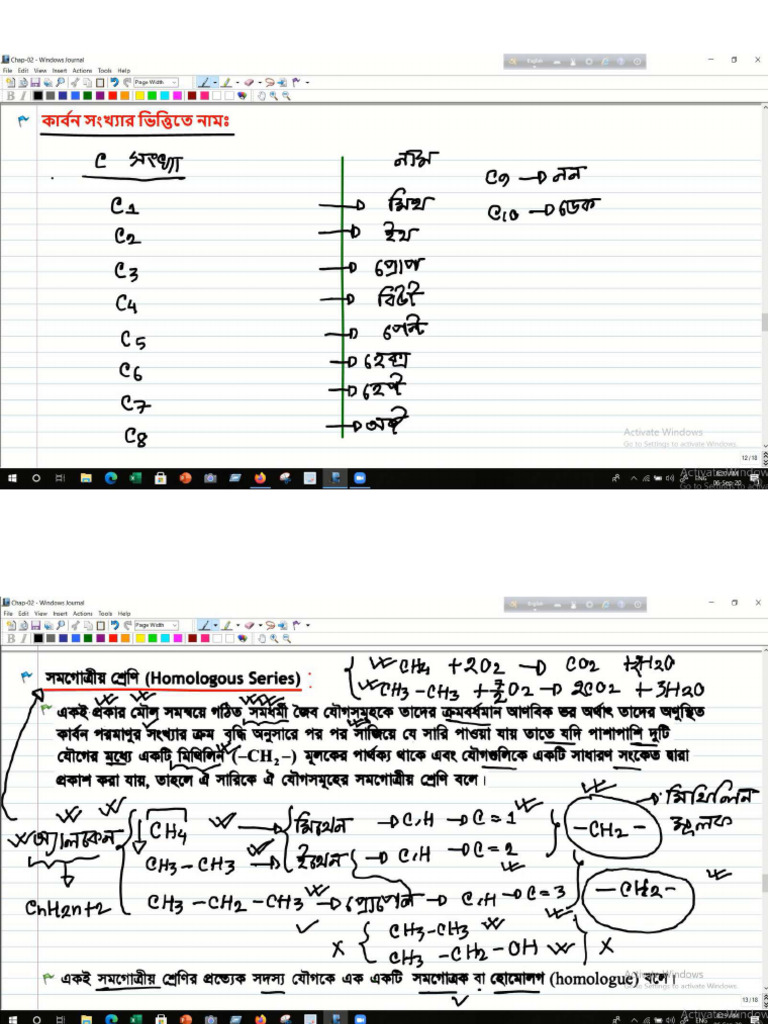 Chap-02 - Windows Journal
English
File Edit View Insert Actions Tools Help
Page Width
কার্বন সংখ্যার ভিত্তিতে নামঃ
C সংখ্যা নাম
C9 → নন
C10 → ডেক
C1 → মিথ
C2 → ইথ
C3 → প্রোপ
C4 → বিউট
C5 → পেন্ট
C6 → হেক্স
C7 → হেপ্ট
C8 → অক্ট
Activate Windows
Go to Settings to activate Windows.
12 / 18
Activate Windows
Go to Settings to activ
ENG
06-Sep-20
Chap-02 - Windows Journal
English
File Edit View Insert Actions Tools Help
Page Width
সমগোত্রীয় শ্রেণি (Homologous Series) :
CH4 + 2O2 → CO2 + 2H2O
CH3 – CH3 + 7/2 O2 → 2CO2 + 3H2O
একই প্রকার মৌল সমন্বয়ে গঠিত সমধর্মী জৈব যৌগসমূহকে তাদের ক্রমবর্ধমান আণবিক ভর অর্থাৎ তাদের অণুস্থিত
কার্বন পরমাণুর সংখ্যার ক্রম বৃদ্ধি অনুসারে পর পর সাজিয়ে যে সারি পাওয়া যায় তাতে যদি পাশাপাশি দুটি
যৌগের মধ্যে একটি মিথিলিন (–CH2–) মূলকের পার্থক্য থাকে এবং যৌগগুলিকে একটি সাধারণ সংকেত দ্বারা
প্রকাশ করা যায়, তাহলে ঐ সারিকে ঐ যৌগসমূহের সমগোত্রীয় শ্রেণি বলে।
অ্যালকেন
CnH2n+2
CH4 → মিথেন → C,H → C = 1
CH3 – CH3 → ইথেন → C,H → C = 2
CH3 – CH2 – CH3 → প্রোপেন → C,H → C = 3
–CH2– → মিথিলিন মূলক
–CH2–
X CH3–CH3
CH3–CH2–OH X
একই সমগোত্রীয় শ্রেণির প্রত্যেক সদস্য যৌগকে এক একটি সমগোত্রক বা হোমোলগ (homologue) বলে।
Activate Windows
Go to Settings to activate Windows.
13 / 18
Activate Window
ENG